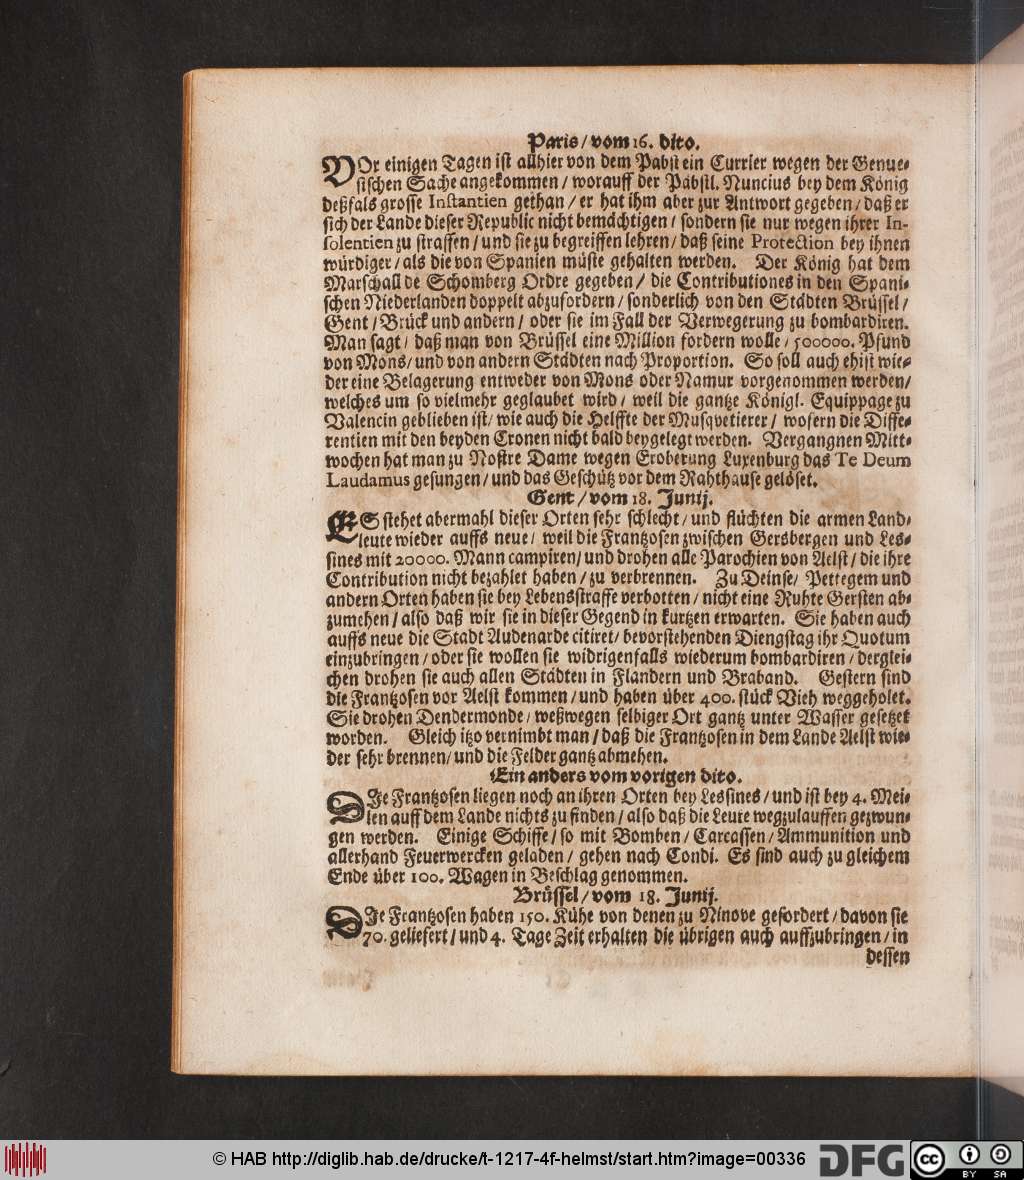 Paris / vom 16. dito.
VOr einigen Tagen ist allhier von dem Pabst ein Currier wegen der Genue-
sischen Sache angekommen / worauff der Päbstl. Nuncius bey dem König
deßfals grosse Instantien gethan / er hat ihm aber zur Antwort gegeben / daß er
sich der Lande dieser Republic nicht bemächtigen / sondern sie nur wegen ihrer In-
solentien zu straffen / und sie zu begreiffen lehren / daß seine Protection bey ihnen
würdiger / als die von Spanien müste gehalten werden. Der König hat dem
Marschall de Schomberg Ordre gegeben / die Contributiones in den Spani-
schen Niederlanden doppelt abzufordern / sonderlich von den Städten Brüssel /
Gent / Brück und andern / oder sie im Fall der Verwegerung zu bombardiren.
Man sagt / daß man von Brüssel eine Million fordern wolle / 500000. Pfund
von Mons / und von andern Städten nach Proportion. So soll auch ehist wie-
der eine Belagerung entweder von Mons oder Namur vorgenommen werden /
welches um so vielmehr geglaubet wird / weil die gantze Königl. Equippage zu
Valencin geblieben ist / wie auch die Helffte der Musqvetierer / wofern die Diffe-
rentien mit den beyden Cronen nicht bald beygelegt werden. Vergangnen Mitt-
wochen hat man zu Nostre Dame wegen Eroberung Luxenburg das Te Deum
Laudamus gesungen / und das Geschütz vor dem Rahthause gelöset.
Gent / vom 18. Junij.
ES stehet abermahl dieser Orten sehr schlecht / und flüchten die armen Land-
leute wieder auffs neue / weil die Frantzosen zwischen Gersbergen und Les-
sines mit 20000. Mann campiren / und drohen alle Parochien von Aelst / die ihre
Contribution nicht bezahlet haben / zu verbrennen. Zu Deinse / Pettegem und
andern Orten haben sie bey Lebensstraffe verbotten / nicht eine Ruhte Gersten ab-
zumehen / also daß wir sie in dieser Gegend in kurtzen erwarten. Sie haben auch
auffs neue die Stadt Audenarde citiret / bevorstehenden Diengstag ihr Quotum
einzubringen / oder sie wollen sie widrigenfalls wiederum bombardiren / derglei-
chen drohen sie auch allen Städten in Flandern und Braband. Gestern sind
die Frantzosen vor Aelst kommen / und haben über 400. stück Vieh weggeholet.
Sie drohen Dendermonde / weßwegen selbiger Ort gantz unter Wasser gesetzet
worden. Gleich itzo vernimbt man / daß die Frantzosen in dem Lande Aelst wie-
der sehr brennen / und die Felder gantz abmehen.
Ein anders vom vorigen dito.
DJe Frantzosen liegen noch an ihren Orten bey Lessines / und ist bey 4. Mei-
len auff dem Lande nichts zu finden / also daß die Leute wegzulauffen gezwun-
gen werden. Einige Schiffe / so mit Bomben / Carcassen / Ammunition und
allerhand Feuerwercken geladen / gehen nach Condi. Es sind auch zu gleichem
Ende über 100. Wagen in Beschlag genommen.
Brüssel / vom 18. Junij.
DJe Frantzosen haben 150. Kühe von denen zu Ninove gefordert / davon sie
70. geliefert / und 4. Tage Zeit erhalten die übrigen auch auffzubringen / in
dessen
© HAB http://diglib.hab.de/drucke/t-1217-4f-helmst/start.htm?image=00336
DFG
cc BY SA